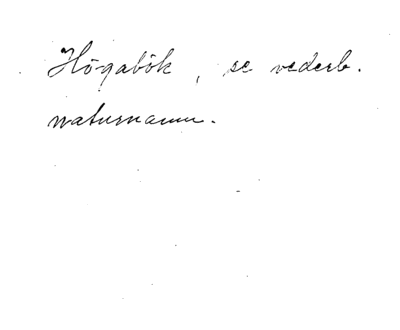 Högabök, se vederb.
naturnamn.